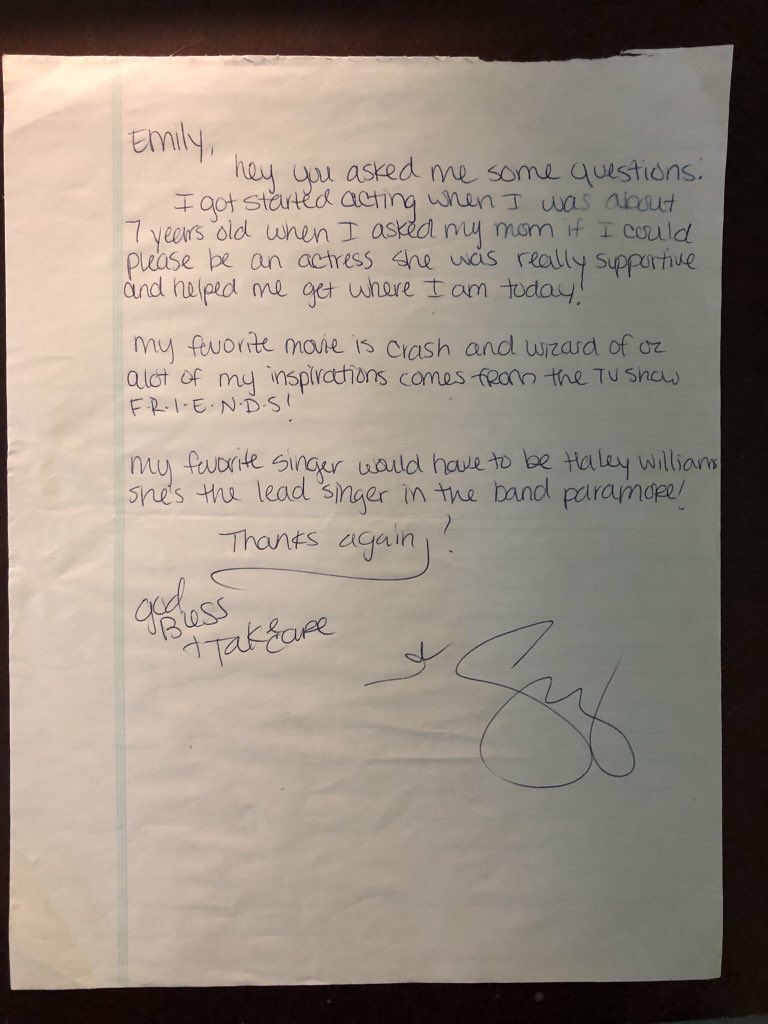 Emily,
hey you asked me some questions.
I got started acting when I was about
7 years old when I asked my mom if I could
please be an actress she was really supportive
and helped me get where I am today!
my favorite movie is crash and wizard of oz
alot of my inspirations comes from the TV show
F.R.I.E.N.D.S!
my favorite singer would have to be Haley Williams
she's the lead singer in the band paramore!
Thanks again!
god
Bless
+ Take care